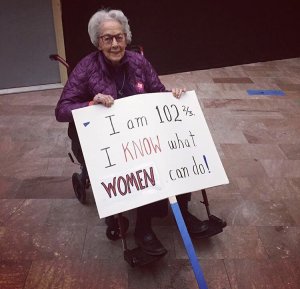 I am 102 ⅔.
I KNOW what
WOMEN can do!